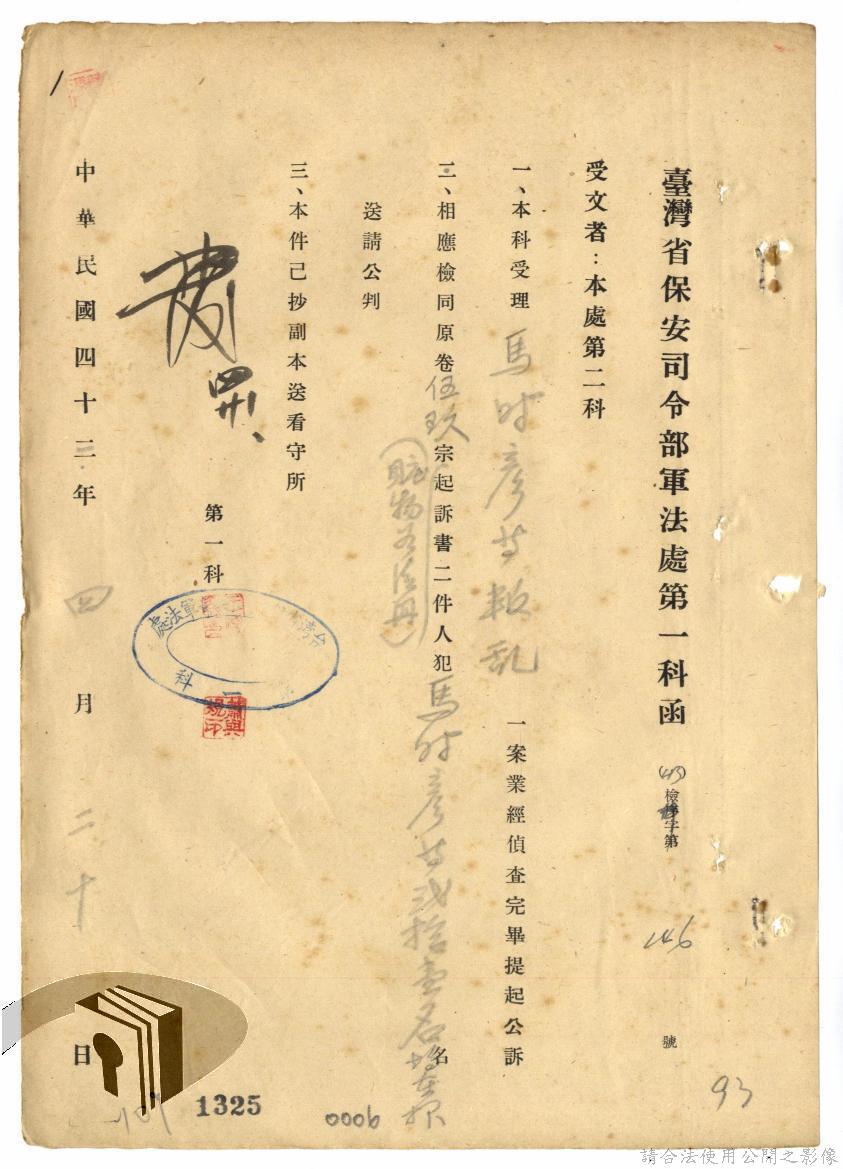 臺灣省保安司令部軍法處第一科函 (43)檢字第 146 號
受文者:本處第二科
一、本科受理 馬時彥等叛亂 一案業經偵查完畢提起公訴
二、相應檢同原卷伍玖宗起訴書二件人犯馬時彥等貳拾壹名
(贓物另送冊)
送請公判
三、本件已抄副本送看守所
第一科
中華民國四十三年 四 月 二十 日
93
0006
1325
請合法使用公開之影像